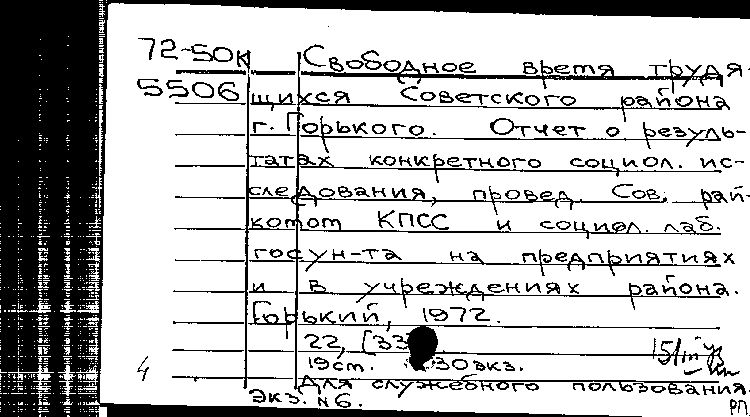 72-50к Свободное время трудя-
5506 щихся Советского района
г. Горького. Отчет о резуль-
татах конкретного социол. ис-
следования, провед. Сов. рай-
комом КПСС и социол. лаб.
госун-та на предприятиях
и в учреждениях района.
Горький, 1972.
22, [33
19см. 30экз.
4 Для служебного пользования.
Экз. №6. РП